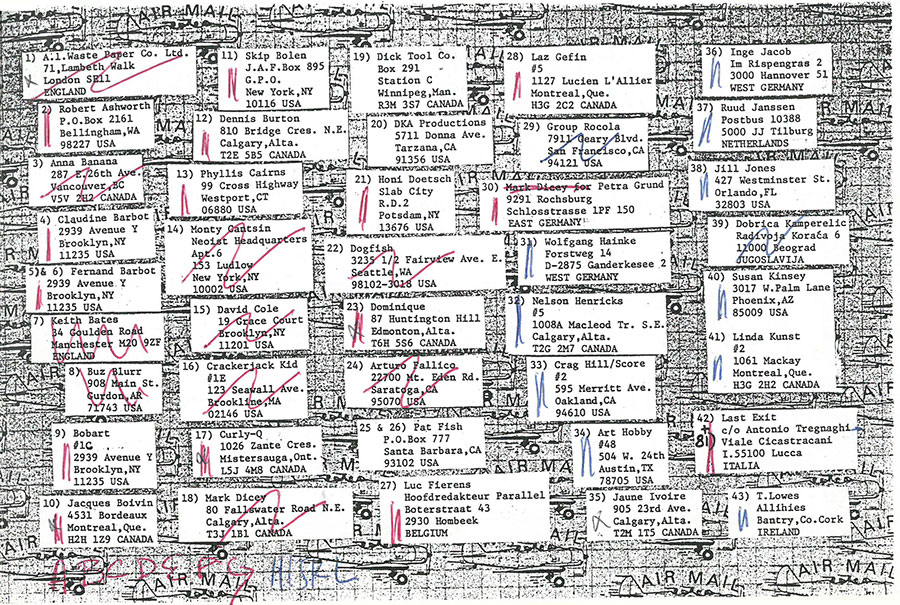 AIR MAIL
1) A.1.Waste Paper Co. Ltd.
71,Lambeth Walk
London SE11
ENGLAND
2) Robert Ashworth
P.O.Box 2161
Bellingham,WA
98227 USA
3) Anna Banana
287 E.26th Ave.
Vancouver,BC
V5V 2H2 CANADA
4) Claudine Barbot
2939 Avenue Y
Brooklyn,NY
11235 USA
5)& 6) Fernand Barbot
2939 Avenue Y
Brooklyn,NY
11235 USA
7) Keith Bates
34 Goulden Road
Manchester M20 9ZF
ENGLAND
8) Buz Blurr
908 Main St.
Gurdon,AR
71743 USA
9) Bobart
#1C
2939 Avenue Y
Brooklyn,NY
11235 USA
10) Jacques Boivin
4531 Bordeaux
Montreal,Que.
H2H 1Z9 CANADA
11) Skip Bolen
J.A.F.Box 895
G.P.O.
New York,NY
10116 USA
12) Dennis Burton
810 Bridge Cres. N.E.
Calgary,Alta.
T2E 5B5 CANADA
13) Phyllis Cairns
99 Cross Highway
Westport,CT
06880 USA
14) Monty Cantsin
Neoist Headquarters
Apt.6
153 Ludlow
New York,NY
10002 USA
15) David Cole
19 Grace Court
Brooklyn,NY
11201 USA
16) Crackerjack Kid
#1E
123 Seawall Ave.
Brookline,MA
02146 USA
17) Curly-Q
1026 Zante Cres.
Mistersauga,Ont.
L5J 4M8 CANADA
18) Mark Dicey
80 Fallswater Road N.E.
Calgary,Alta.
T3J 1B1 CANADA
19) Dick Tool Co.
Box 291
Station C
Winnipeg,Man.
R3M 3S7 CANADA
20) DKA Productions
5711 Donna Ave.
Tarzana,CA
91356 USA
21) Honi Doetsch
Slab City
R.D.2
Potsdam,NY
13676 USA
22) Dogfish
3235 1/2 Fairview Ave. E.
Seattle,WA
98102-3018 USA
23) Dominique
87 Huntington Hill
Edmonton,Alta.
T6H 5S6 CANADA
24) Arturo Fallico
22700 Mt. Eden Rd.
Saratoga,CA
95070 USA
25 & 26) Pat Fish
P.O.Box 777
Santa Barbara,CA
93102 USA
27) Luc Fierens
Hoofdredakteur Parallel
Boterstraat 43
2930 Hombeek
BELGIUM
28) Laz Gefin
#5
1127 Lucien L'Allier
Montreal,Que.
H3G 2C2 CANADA
29) Group Rocola
7911 Geary Blvd.
San Francisco,CA
94121 USA
30) Mark Dicey for Petra Grund
9291 Rochsburg
Schlosstrasse 1PF 150
EAST GERMANY
31) Wolfgang Hainke
Forstweg 14
D-2875 Ganderkesee 2
WEST GERMANY
32) Nelson Henricks
#5
1008A Macleod Tr. S.E.
Calgary,Alta.
T2G 2M7 CANADA
33) Crag Hill/Score
#2
595 Merritt Ave.
Oakland,CA
94610 USA
34) Art Hobby
#48
504 W. 24th
Austin,TX
78705 USA
35) Jaune Ivoire
905 23rd Ave.
Calgary,Alta.
T2M 1T5 CANADA
36) Inge Jacob
Im Rispengras 2
3000 Hannover 51
WEST GERMANY
37) Ruud Janssen
Postbus 10388
5000 JJ Tilburg
NETHERLANDS
38) Jill Jones
427 Westminster St.
Orlando,FL
32803 USA
39) Dobrica Kamperelic
Radivoja Koraća 6
11000 Beograd
JUGOSLAVIJA
40) Susan Kinsey
3017 W.Palm Lane
Phoenix,AZ
85009 USA
41) Linda Kunst
#2
1061 Mackay
Montreal,Que.
H3G 2H2 CANADA
42) Last Exit
+ c/o Antonio Tregnaghi
81) Viale Cicastracani
I.55100 Lucca
ITALIA
43) T.Lowes
Allihies
Bantry,Co.Cork
IRELAND
AIR MAIL
AIR MAIL
AIR MAIL